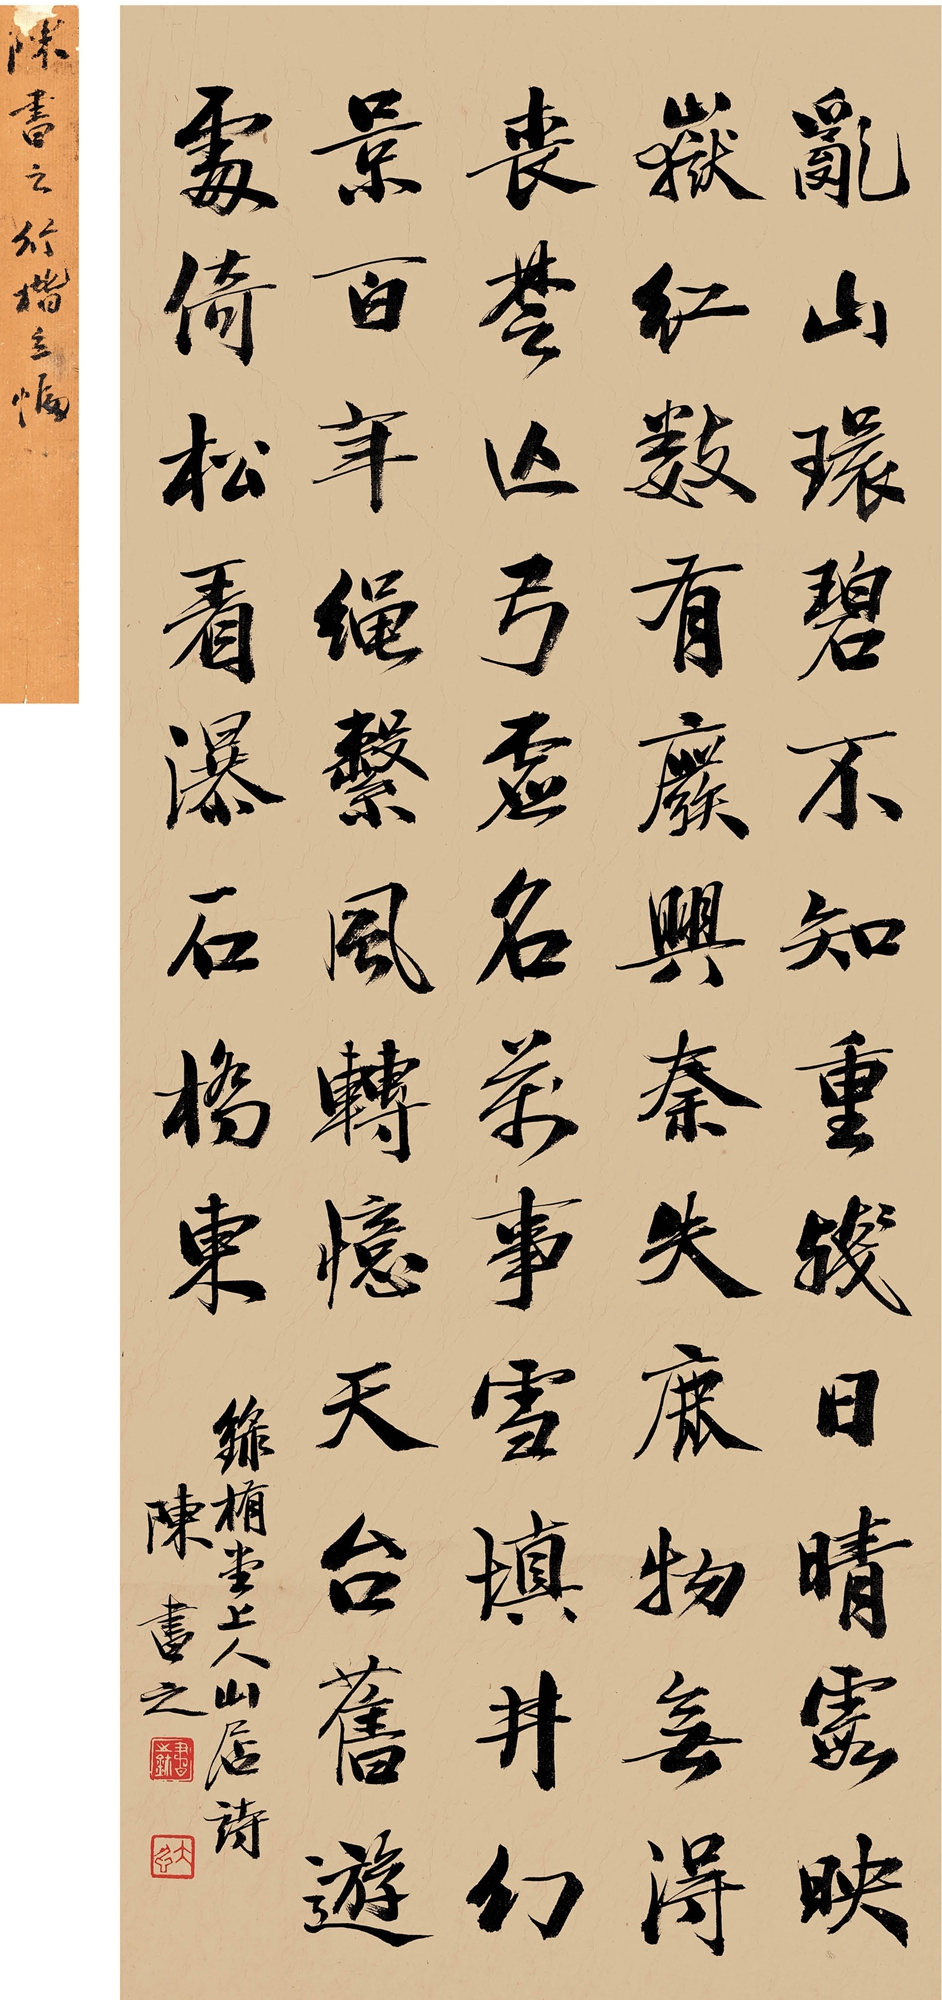 亂山環碧不知重殘日晴霞映
嶽紅數有廢興秦失鹿物無得
喪楚亡弓虛名萬事雪填井幻
景百年繩繫風轉憶天台舊遊
處倚松看瀑石橋東
錄栯堂上人山居詩
陳書之
陳書之行楷立幅